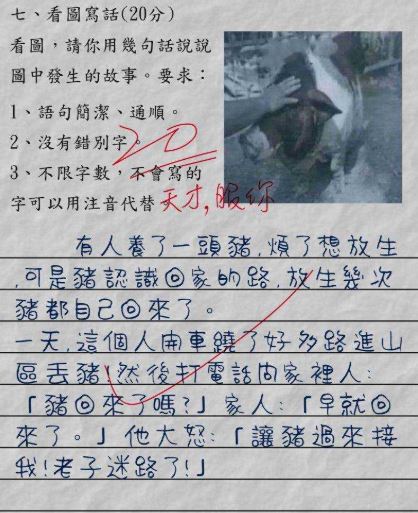 七、看圖寫話(20分)
看圖，請你用幾句話說說
圖中發生的故事。要求：
1、語句簡潔、通順。
2、沒有錯別字。
20
3、不限字數，不會寫的
字可以用注音代替。
天才,服你
有人養了一頭豬,煩了想放生
,可是豬認識回家的路,放生幾次
豬都自己回來了。
一天,這個人開車繞了好多路進山
區丟豬!然後打電話問家裡人:
「豬回來了嗎?」家人:「早就回
來了。」他大怒:「讓豬過來接
我!老子迷路了!」